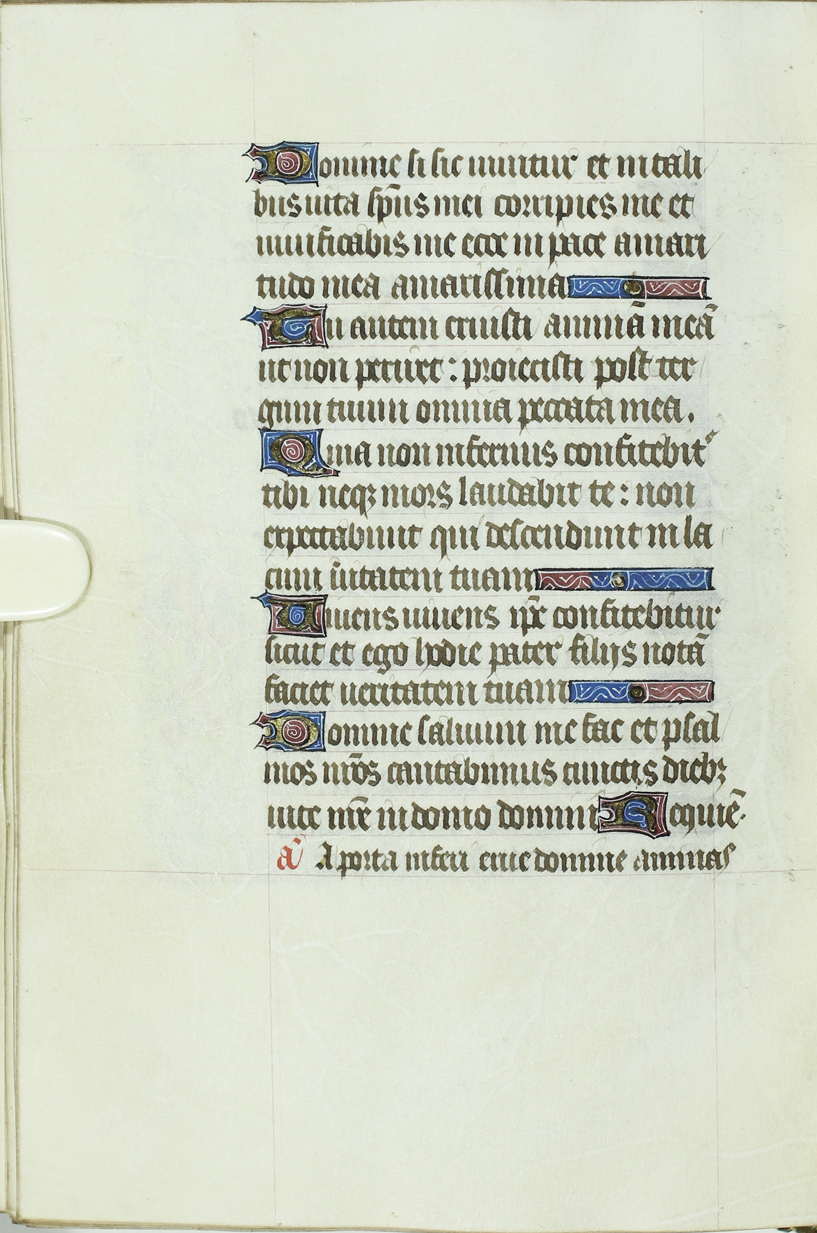 Domine si sic uiuitur et in tali
bus uita sp̄us mei corripies me et
uiuificabis me ecce in pace amari
tudo mea amarissima
Tu autem eruisti animā meā
ut non periret : proiecisti post ter
gum tuum omnia peccata mea .
Quia non infernus confitebit᷑
tibi neqꝫ mors laudabit te : non
expectabunt qui descendunt in la
cum ūitatem tuam
Viuens uiuens ip̄e confitebitur
sicut et ego hodie pater filijs notā
faciet ueritatem tuam
Domine saluum me fac et psal
mos nr̄os cantabimus cunctis diebꝫ
uite nr̄e in domo domini Requiē.
a᷑ A porta inferi erue domine animas